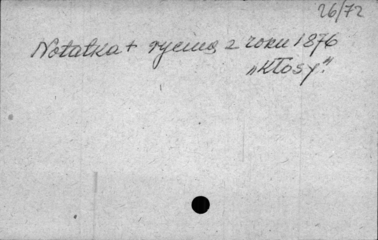 26/72
Notatka + rycina z roku 1876
„Kłosy".